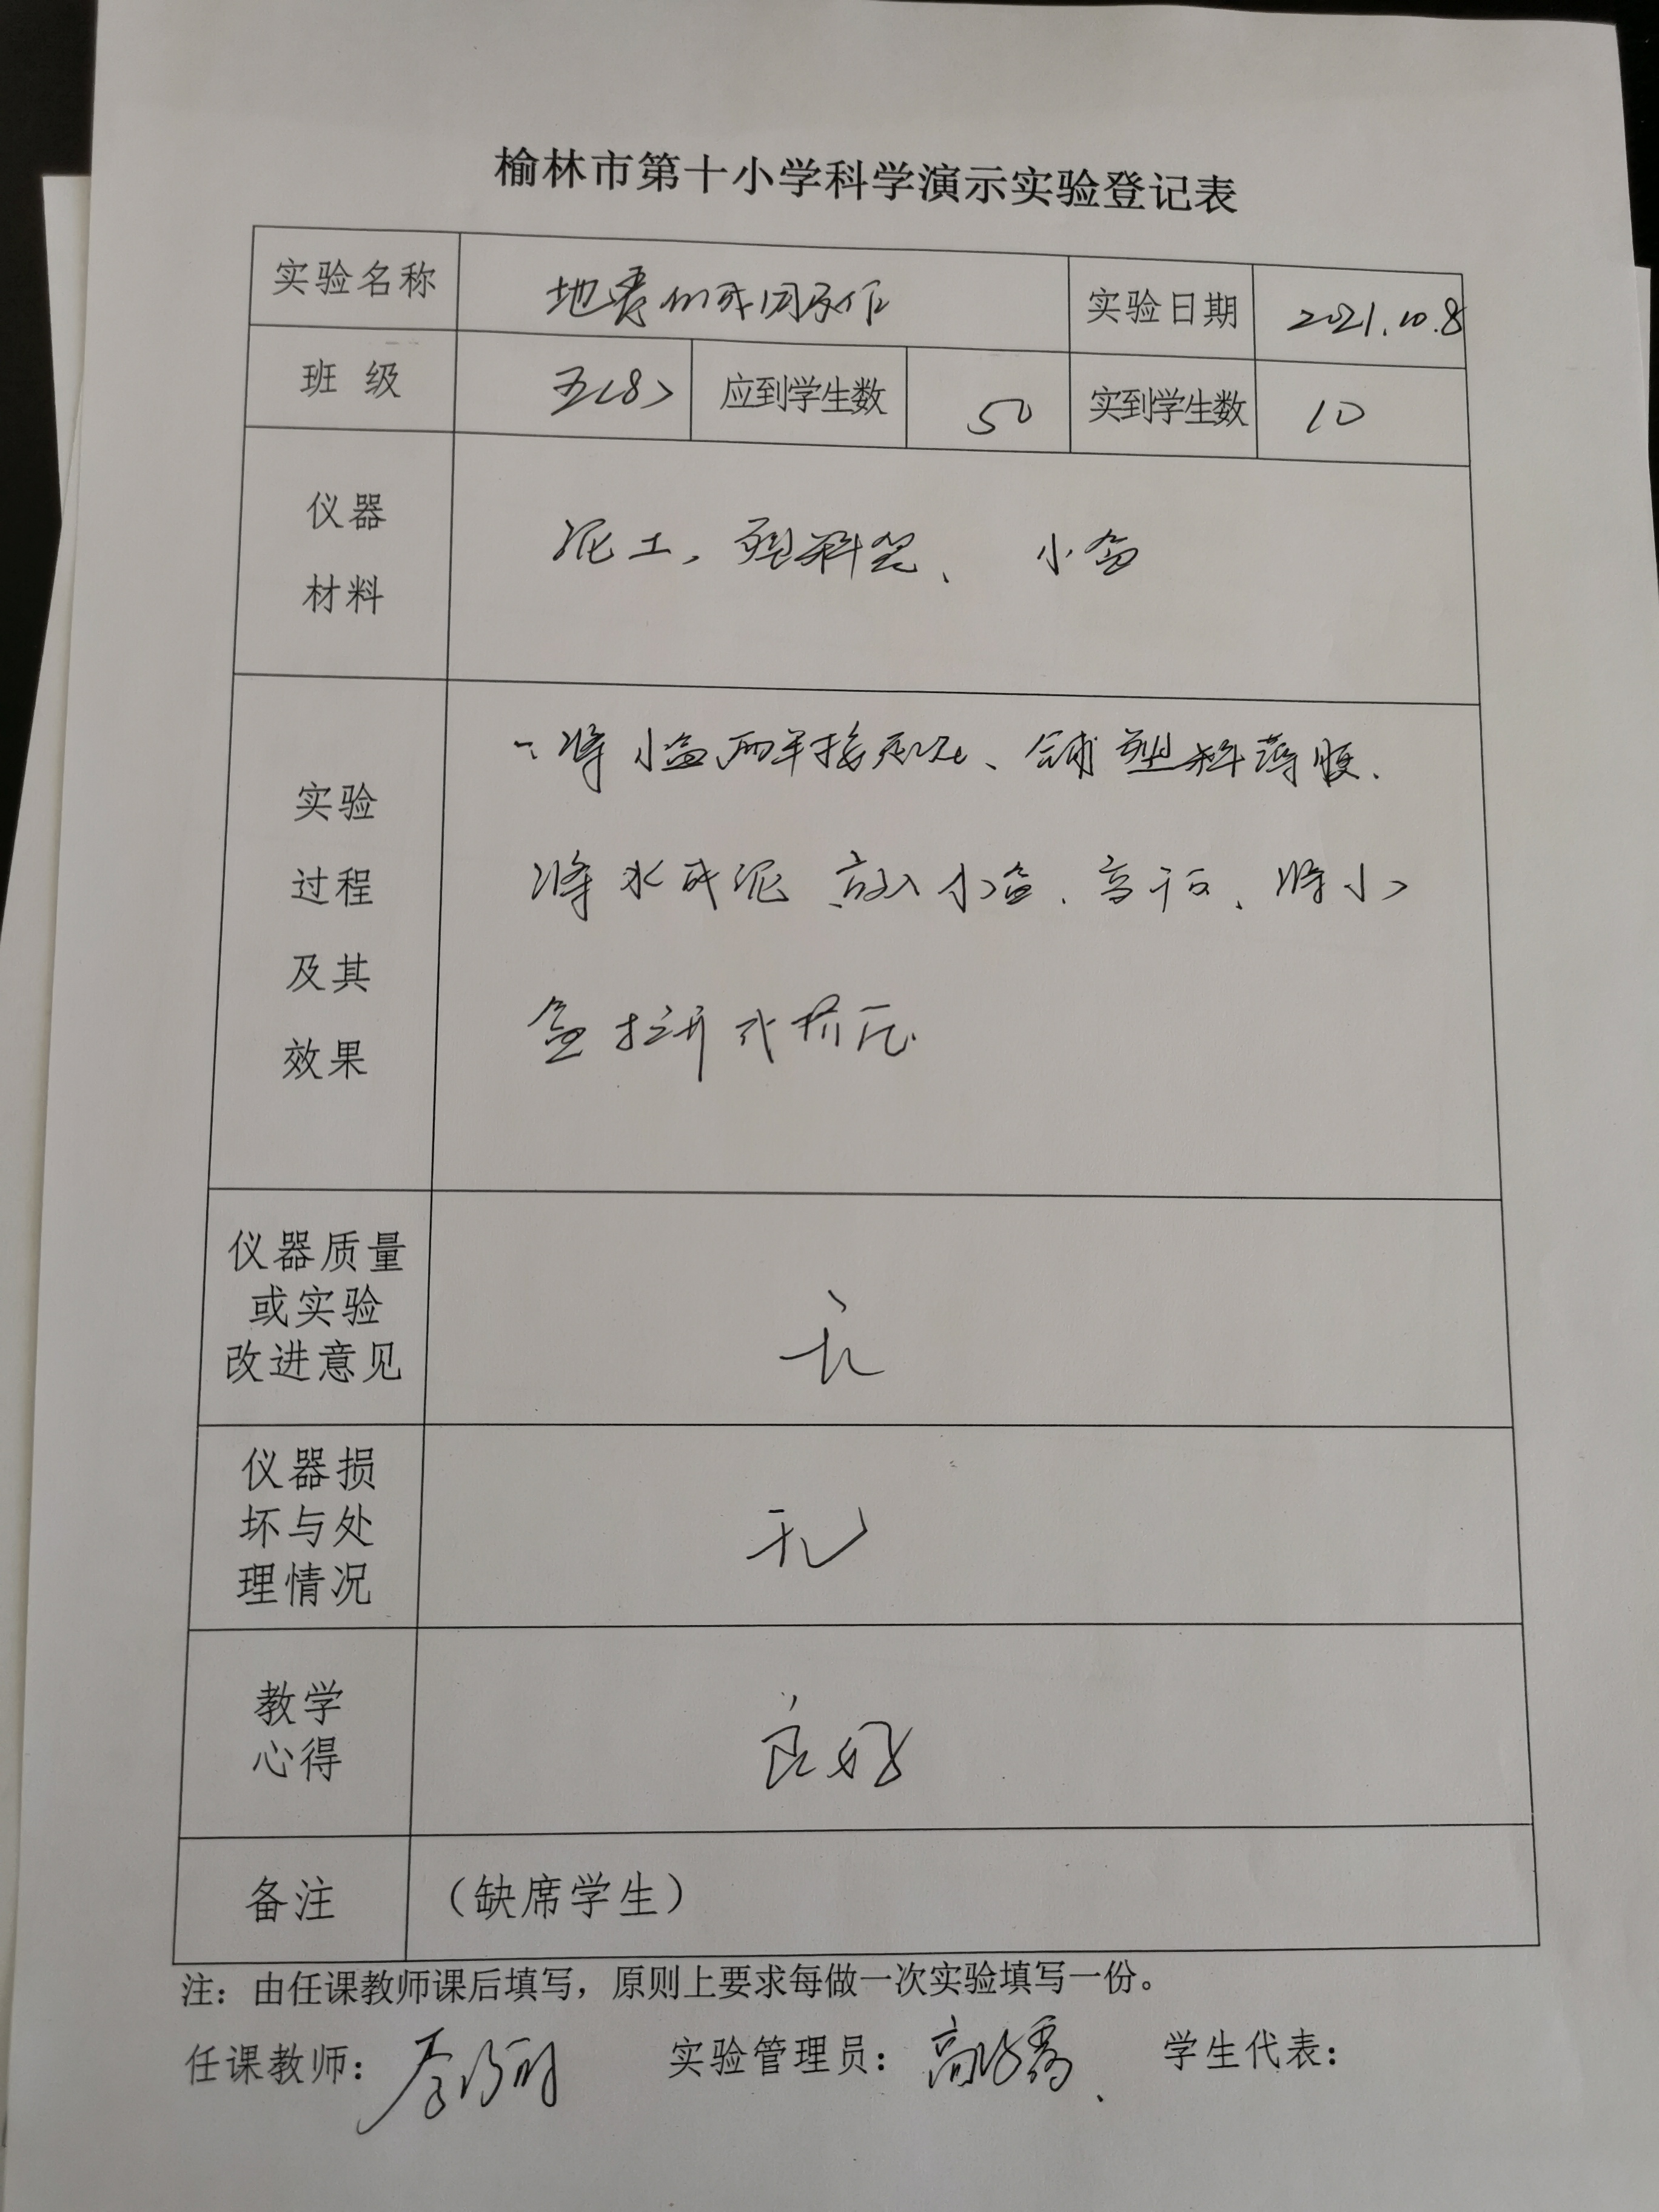 榆林市第十小学科学演示实验登记表
实验名称 地震的成因 实验日期 2021.10.8
班 级 五<8> 应到学生数 50 实到学生数 10
仪器
材料
泥土, 塑料 、 小盒
实验
过程
及其
效果
将小盒两半接 、铺塑料薄膜.
将水成泥 放入小盒. 干后、将小
盒拉开或挤压.
仪器质量
或实验
改进意见
无
仪器损
坏与处
理情况
无
教学
心得
良好
备注 （缺席学生）
注：由任课教师课后填写，原则上要求每做一次实验填写一份。
任课教师： 实验管理员： 学生代表：